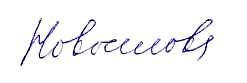 Новоселова